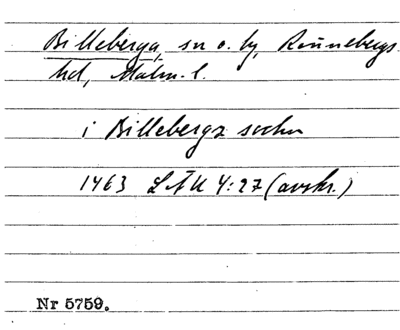 Billeberga, sn o. by, Rönnebergs
hd, Malm. l.
i Billebergz sochn
1463 LÄU 4:27 (avskr.)
Nr 5759.